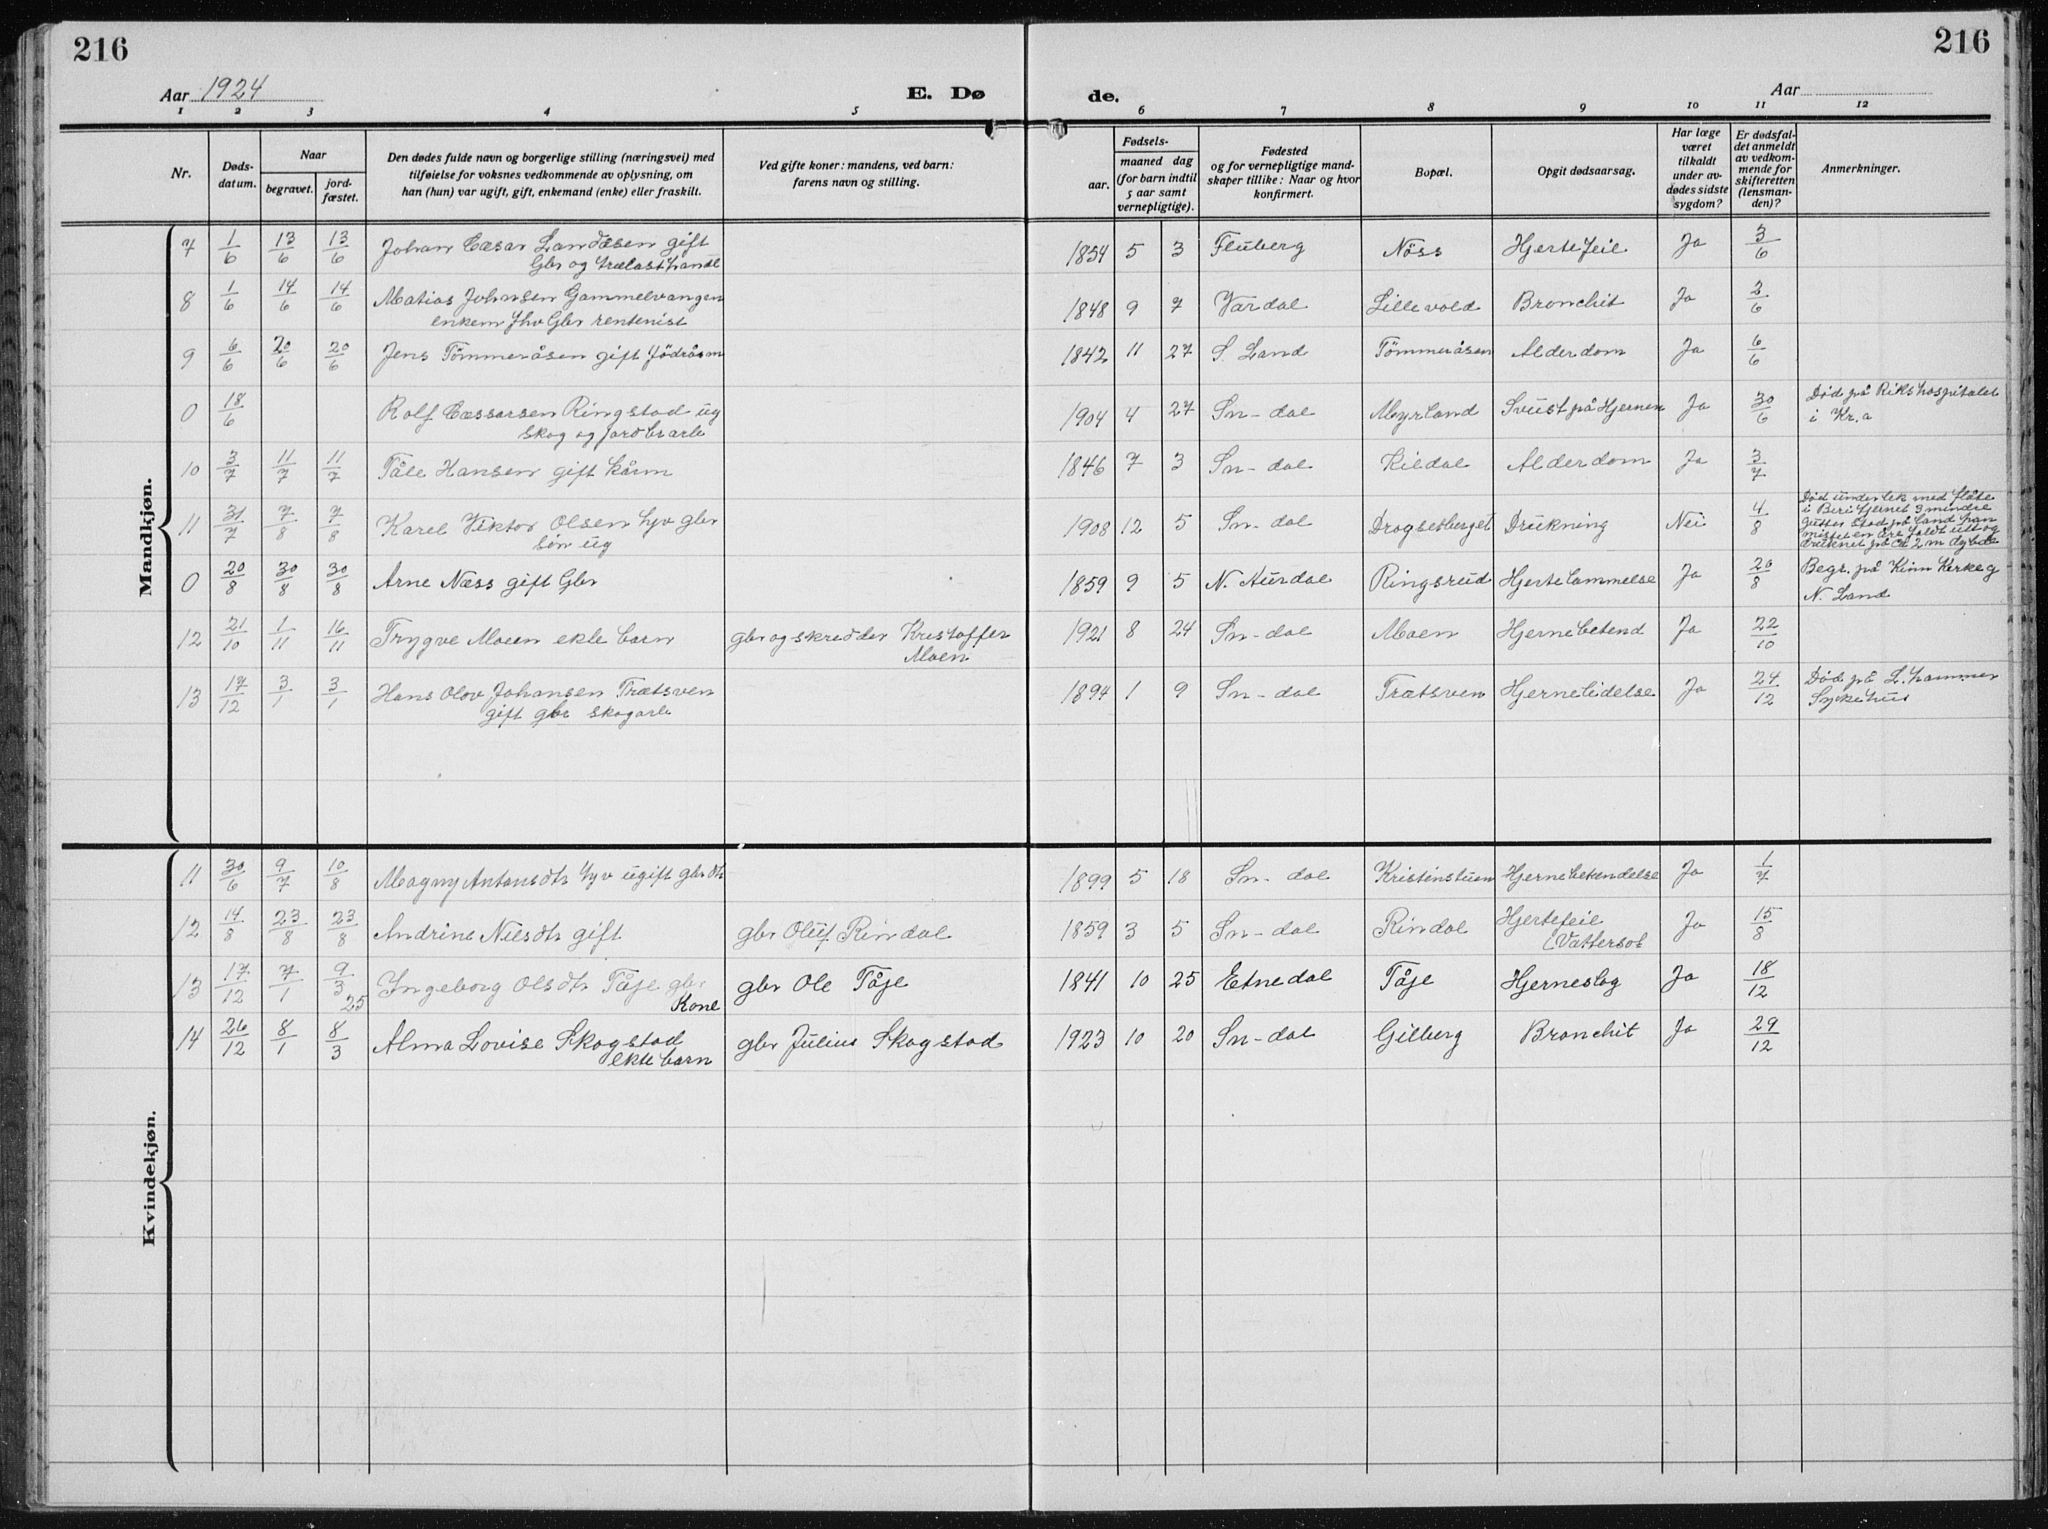 216
216
Aar 1924
E. Dø
de.
Aar
1 2 3 4 5 6 7 8 9 10 11 12
Nr.
Døds-
datum.
Naar
begravet.
jord-
fæstet.
Den dødes fulde navn og borgerlige stilling (næringsvei) med
tilføielse for voksnes vedkommende av oplysning, om
han (hun) var ugift, gift, enkemand (enke) eller fraskilt.
Ved gifte koner: mandens, ved barn:
farens navn og stilling.
Fødsels-
aar.
maaned dag
(for barn indtil
5 aar samt
vernepligtige).
Fødested
og for vernepligtige mand-
skaper tillike: Naar og hvor
konfirmert.
Bopæl.
Opgit dødsaarsag.
Har læge
været
tilkaldt
under av-
dødes sidste
sygdom?
Er dødsfal-
det anmeldt
av vedkom-
mende for
skifteretten
(lensman-
den)?
Anmerkninger.
Mandkjøn.
7 1/6 13/6 13/6 Johan Cæsar Landåsen gift 1854 5 3 Fluberg Nöss Hjertefeil Ja 3/6
Gbr og trælasthandl
8 1/6 14/6 14/6 Matias Johnsen Gammelvangen 1848 9 7 Vardal Lillevold Bronchit Ja 2/6
enkem fhv Gbr rentenist
9 6/6 20/6 20/6 Jens Tömmeråsen gift födråsm 1842 11 27 S. Land Tömmeråsen Alderdom Ja 6/6
0 18/6 Rolf Cæssarsen Ringstad ug 1904 4 27 Sn-dal Myrland Svust på Hjernen Ja 30/6 Död på Rikshospitalet
skog og jordbrarb i Kr.a
10 3/7 11/7 11/7 Tåle Hansen gift kårm 1846 7 3 Sn-dal Kildal Alderdom Ja 3/7
11 31/7 7/8 7/8 Karel Viktor Olsen hjv gbr 1908 12 5 Sn-dal Drogsetberget Drukning Nei 4/8 Död under lek med flåte
sön ug i Beritjernet 3 mindre
gutter stod på land han
mistet en åre faldt utt og
druknet på ca 2 m dybde
0 20/8 30/8 30/8 Arne Næss gift Gbr 1859 9 5 N. Aurdal Ringsrud Hjertelammelse Ja 20/8 Begr. på Kinn Kirkeg
N. Land
12 21/10 1/11 16/11 Trygve Moen ekte barn gbr og skredder Kristoffer 1921 8 24 Sn-dal Moen Hjernebetend Ja 22/10
Moen
13 17/12 3/1 3/1 Hans Olov Johansen Trætsven 1894 1 9 Sn-dal Trætsven Hjernelidelse Ja 24/12 Död på L.hammer
gift gbr skogarb Sykehus
Kvindekjøn.
11 30/6 9/7 10/8 Magny Antonsdtr hjv ugift gbr dtr 1899 5 18 Sn-dal Kristinstuen Hjernebetendelse Ja 1/7
12 14/8 23/8 23/8 Andrine Nilsdtr gift gbr Oluf Rindal 1859 3 5 Sn-dal Rindal Hjertefeil Ja 15/8
(Vattersot
13 17/12 7/1 9/3 25 Ingeborg Olsdtr Tåje gbr gbr Ole Tåje 1841 10 25 Etnedal Tåje Hjerneslag Ja 18/12
Kone
14 26/12 8/1 8/3 Alma Lovise Skogstad gbr Julius Skogstad 1923 10 20 Sn-dal Gilberg Bronchit Ja 29/12
ekte barn